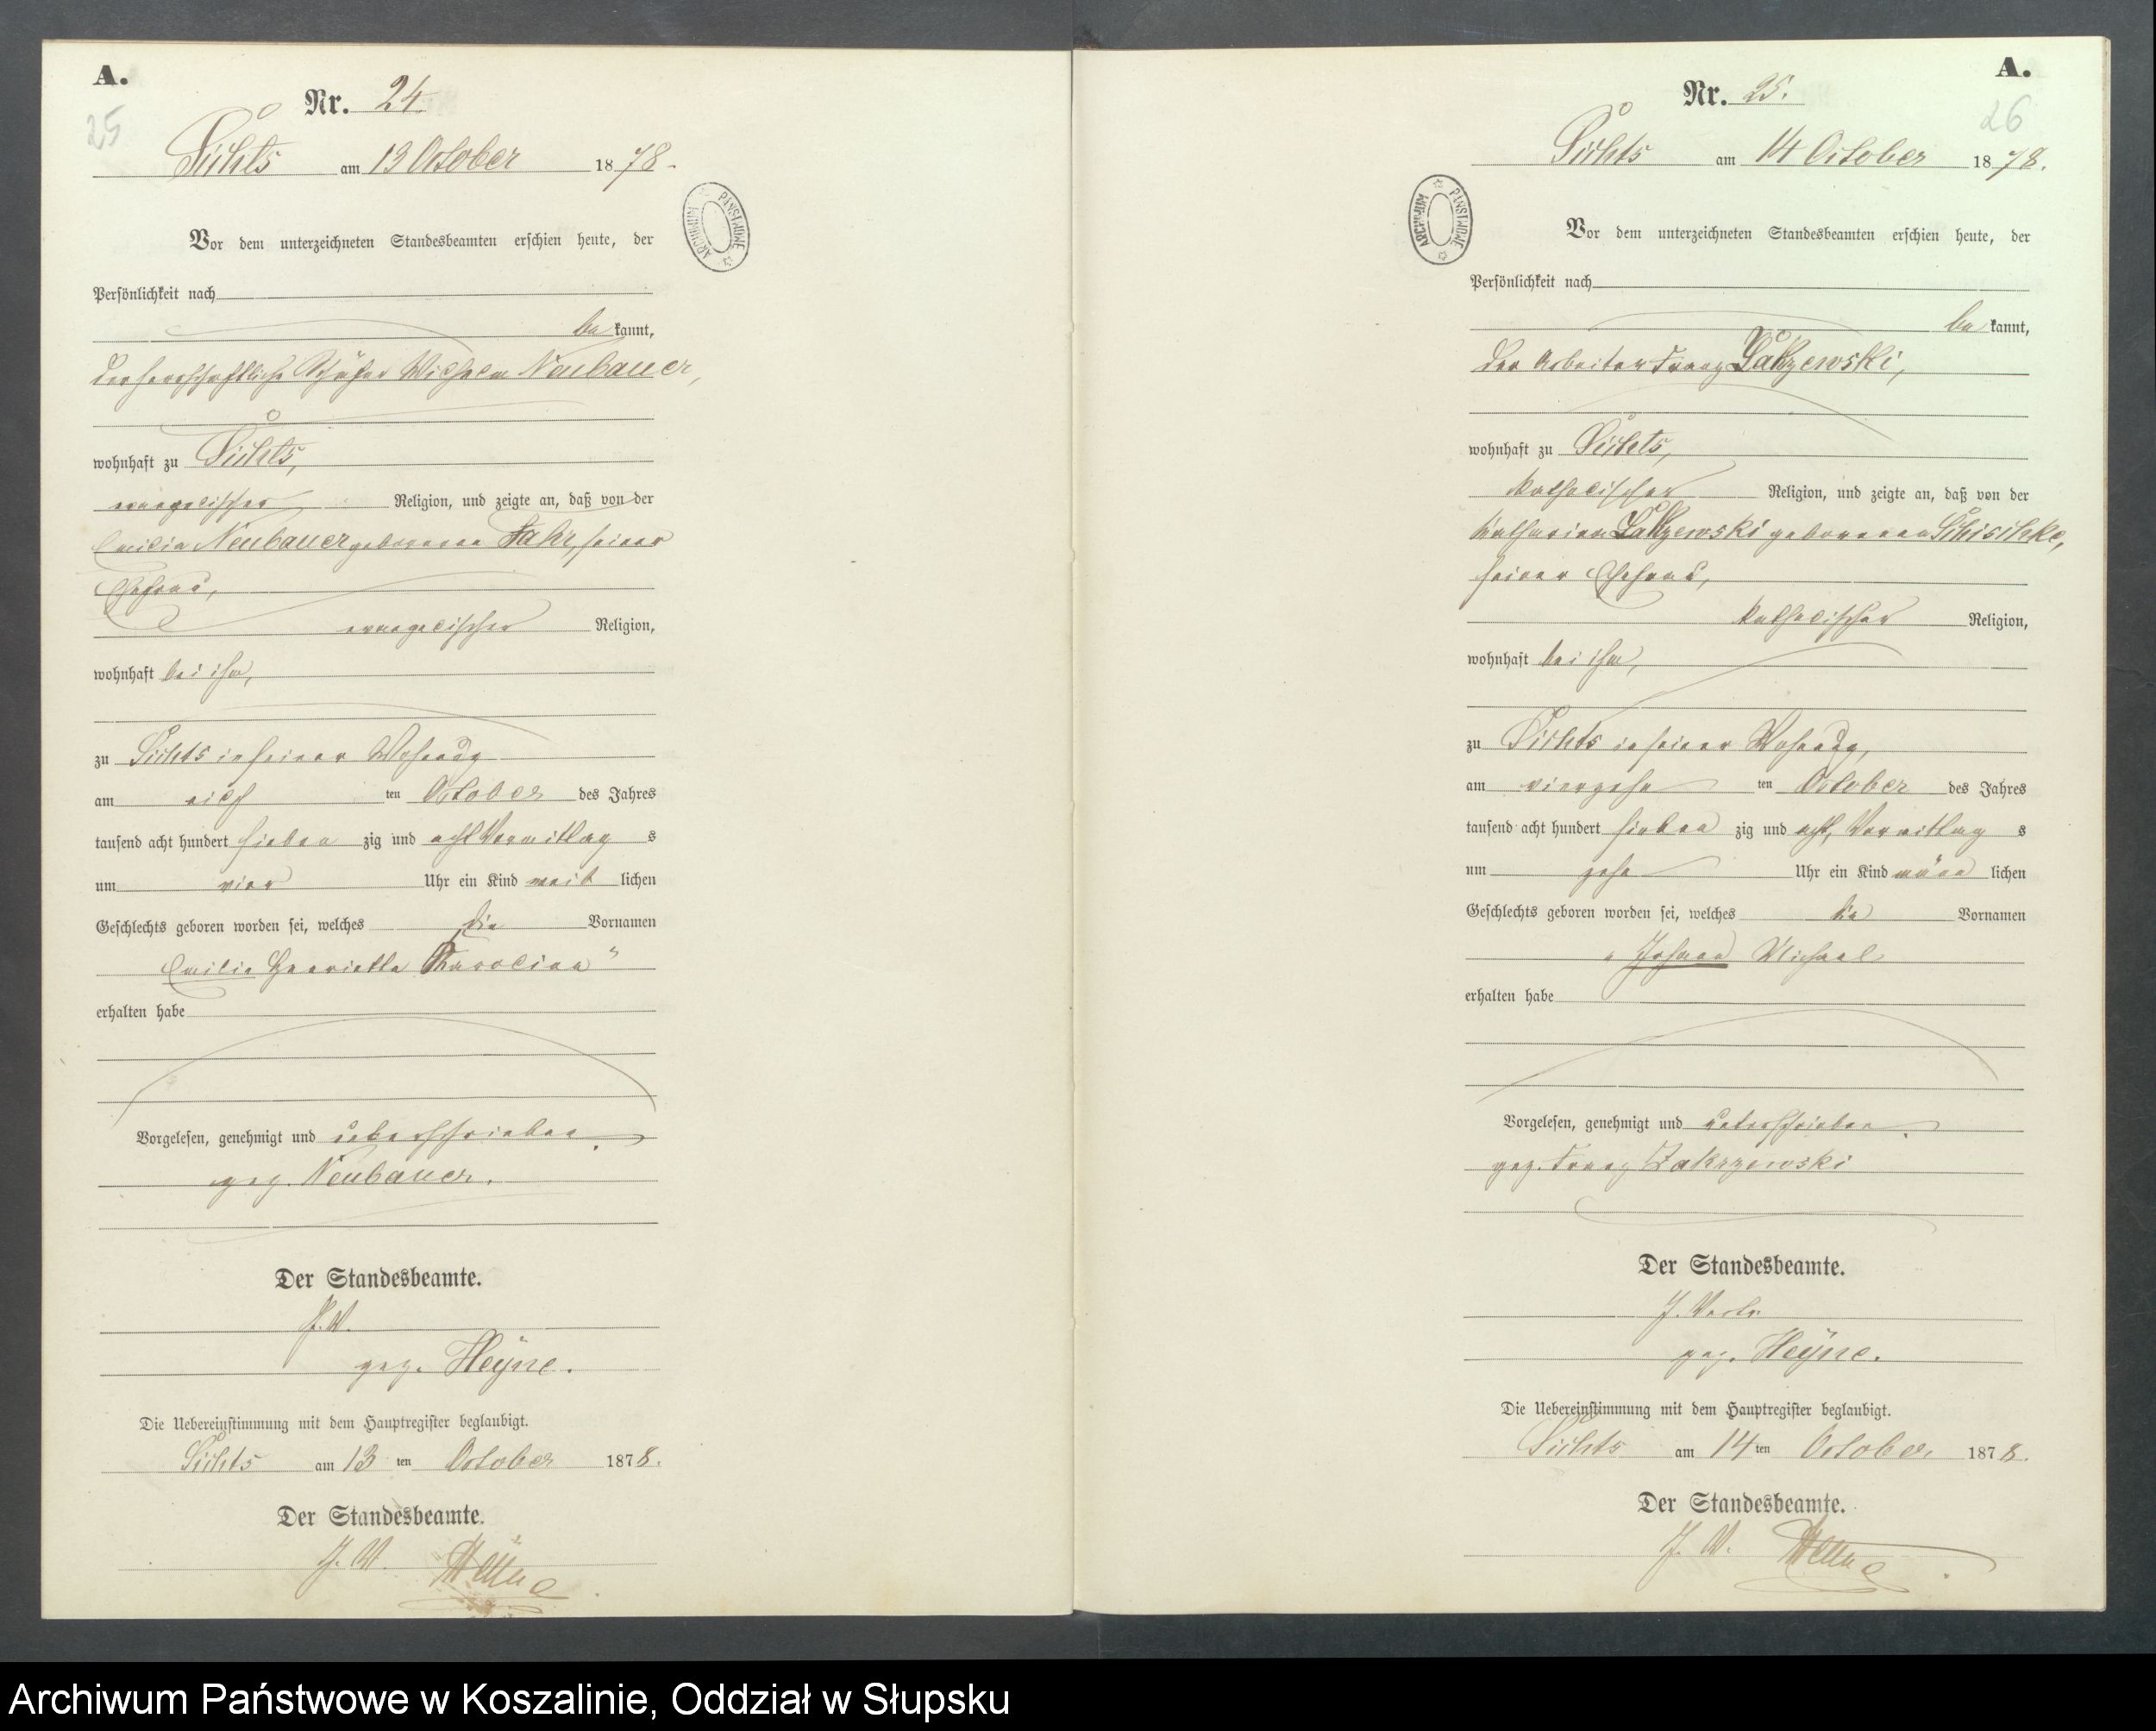 A.
Nr. 24.
25
Süchts am 13 October 1878.
Vor dem unterzeichneten Standesbeamten erschien heute, der
Persönlichkeit nach
be kannt,
der herrschaftliche Schäfer Wilhelm Neubauer,
wohnhaft zu Süchts,
evangelischer Religion, und zeigte an, daß von der
Emilie Neubauer geborenen Fahr, seiner
Ehefrau,
evangelischer Religion,
wohnhaft bei ihm,
zu Süchts in seiner Wohnung
am eilf ten October des Jahres
tausend acht hundert sieben zig und acht Vormittag s
um vier Uhr ein Kind weib lichen
Geschlechts geboren worden sei, welches die Vornamen
Emilie Henriette Karoline"
erhalten habe
Vorgelesen, genehmigt und unterschrieben.
gez. Neubauer.
Der Standesbeamte.
J. V.
gez. Heyne.
Die Uebereinstimmung mit dem Hauptregister beglaubigt.
Süchts am 13 ten October 1878.
Der Standesbeamte.
J. V. Heyne
ARCHIWUM PAŃSTWOWE
A.
Nr. 25.
26
Süchts am 14 October 1878.
Vor dem unterzeichneten Standesbeamten erschien heute, der
Persönlichkeit nach
be kannt,
der Arbeiter Franz Zakrzewski,
wohnhaft zu Süchts,
katholischer Religion, und zeigte an, daß von der
Katharina Zakrzewski geborenen Schischke,
seiner Ehefrau,
katholischer Religion,
wohnhaft bei ihm,
zu Süchts in seiner Wohnung,
am vierzehn ten October des Jahres
tausend acht hundert sieben zig und acht, Vormittag s
um zehn Uhr ein Kind männ lichen
Geschlechts geboren worden sei, welches die Vornamen
"Johann Michael
erhalten habe
Vorgelesen, genehmigt und unterschrieben.
gez. Franz Zakrzewski
Der Standesbeamte.
J. Vertr.
gez. Heyne.
Die Uebereinstimmung mit dem Hauptregister beglaubigt.
Süchts am 14 ten October 1878.
Der Standesbeamte.
J. V. Heyne
ARCHIWUM PAŃSTWOWE
Archiwum Państwowe w Koszalinie, Oddział w Słupsku